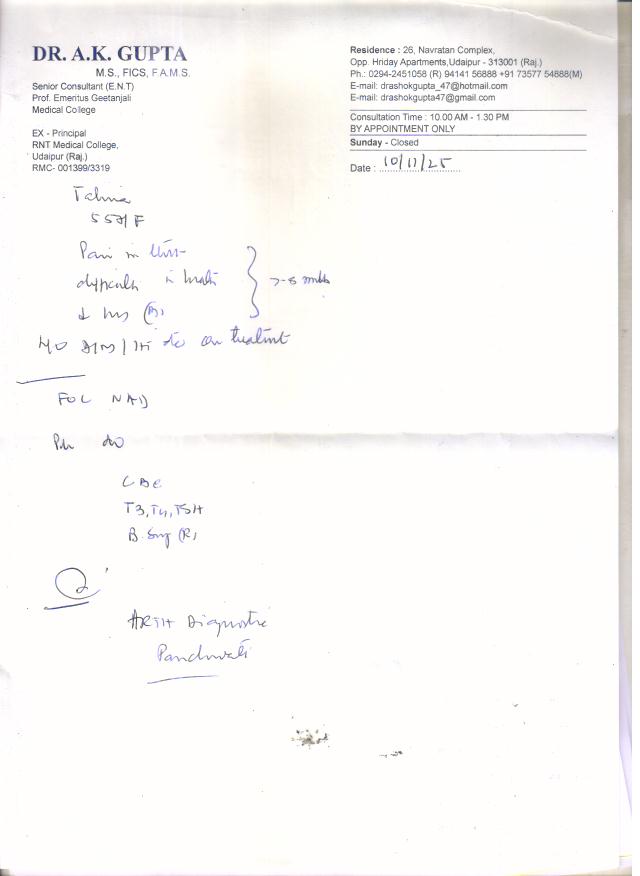 DR. A.K. GUPTA
M.S., FICS, F.A.M.S.
Senior Consultant (E.N.T)
Prof. Emeritus Geetanjali
Medical College
EX - Principal
RNT Medical College,
Udaipur (Raj.)
RMC- 001399/3319
Residence : 26, Navratan Complex,
Opp. Hriday Apartments,Udaipur - 313001 (Raj.)
Ph.: 0294-2451058 (R) 94141 56888 +91 73577 54888(M)
E-mail: drashokgupta_47@hotmail.com
E-mail: drashokgupta47@gmail.com
Consultation Time : 10.00 AM - 1.30 PM
BY APPOINTMENT ONLY
Sunday - Closed
Date : 10/11/25
55y/F
Pain in
on
FOL NAD
CBC
T3, T4, TSH
B. Sug (R)
ARTH Diagnostic
Panchwati